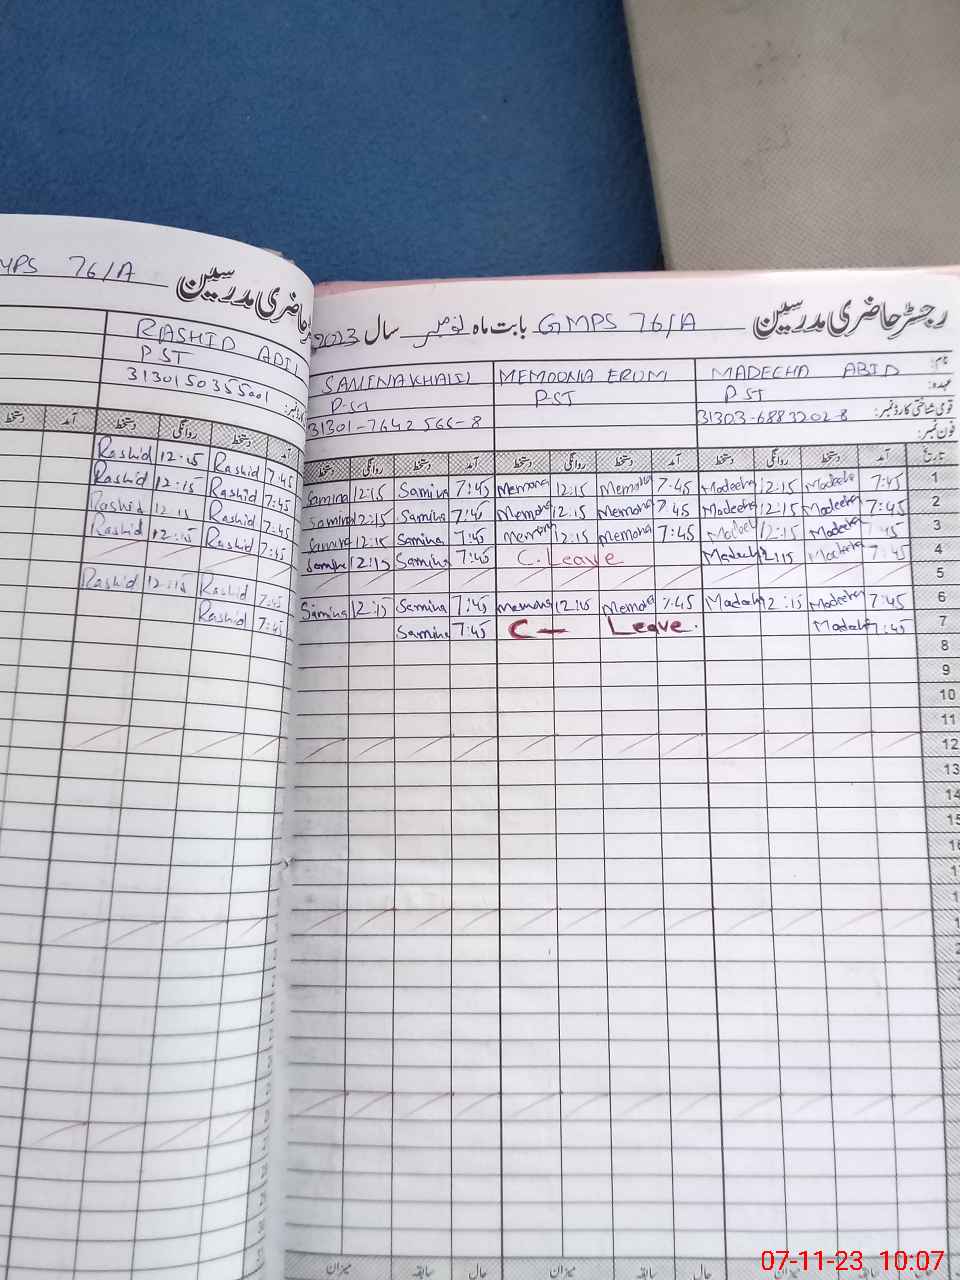 MPS 76/A حاضری مدرسین
RASHID ADIL
PST
3130150355001
دستخط آمد دستخط روانگی دستخط آمد
Rashid 12:15 Rashid 7:45
Rashid 12:15 Rashid 7:45
Rashid 12:15 Rashid 7:45
Rashid 12:15 Rashid 7:45
Rashid 12:15 Rashid 7:45
Rashid 7:45
رجسٹر حاضری مدرسین GMPS 76/A بابت ماہ نومبر سال 2023
نام: MADEEHA ABID MEMOONA ERUM
عہدہ: PST PST PST
قومی شناختی کارڈ نمبر: 31303-6883202-8 31301-7642566-8
فون نمبر:
تاریخ آمد دستخط روانگی دستخط آمد دستخط روانگی دستخط آمد دستخط روانگی دستخط
Samina 12:15 Samina 7:45 Memona 12:15 Memona 7:45 Madeeha 12:15 Madeeha 7:45 1
Samina 12:15 Samina 7:45 Memona 12:15 Memona 7:45 Madeeha 12:15 Madeeha 7:45 2
Samina 12:15 Samina 7:45 Memona 12:15 Memona 7:45 Madeeha 12:15 Madeeha 7:45 3
Samina 12:15 Samina 7:45 C.Leave Madeeha 12:15 Madeeha 7:45 4
5
Samina 12:15 Samina 7:45 Memona 12:15 Memona 7:45 Madeeha 12:15 Madeeha 7:45 6
Samina 7:45 C — Leave. Madeeha 7:45 7
8
9
10
11
12
13
14
15
16
میزان سابقہ حال میزان سابقہ حال میزان
07-11-23 10:07